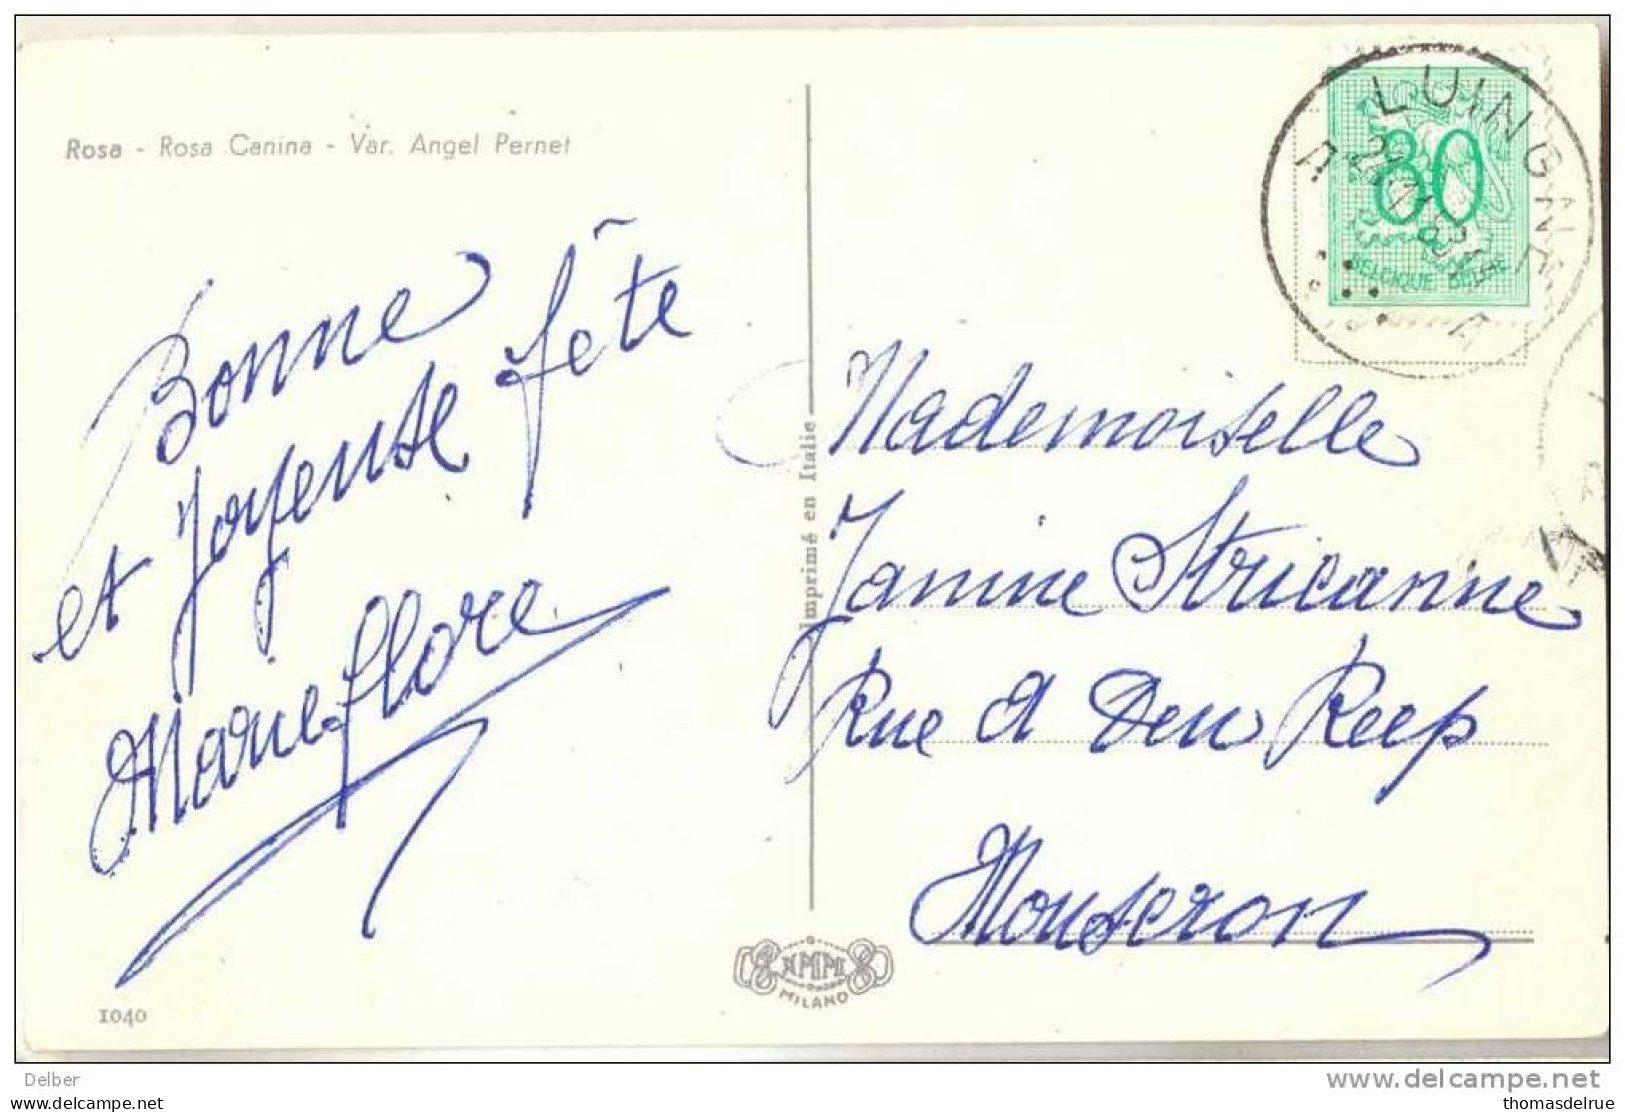 Rosa - Rosa Canina - Var. Angel Pernet
Bonne
et Joyeuse fête
Marie-flore
1040
Imprimé en Italie
NMM
MILANO
LUINGNE
80
BELGIQUE BELGIE
Mademoiselle
Janine Stricanne
Rue d Den Reep
Mouscron
Delber
www.delcampe.net
thomasdelrue